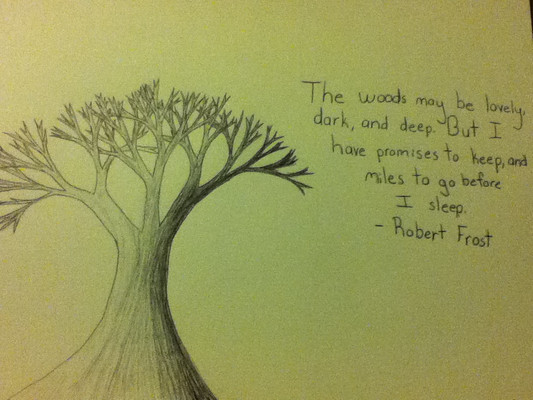 The woods may be lovely,
dark, and deep. But I
have promises to keep, and
miles to go before
I sleep.
- Robert Frost